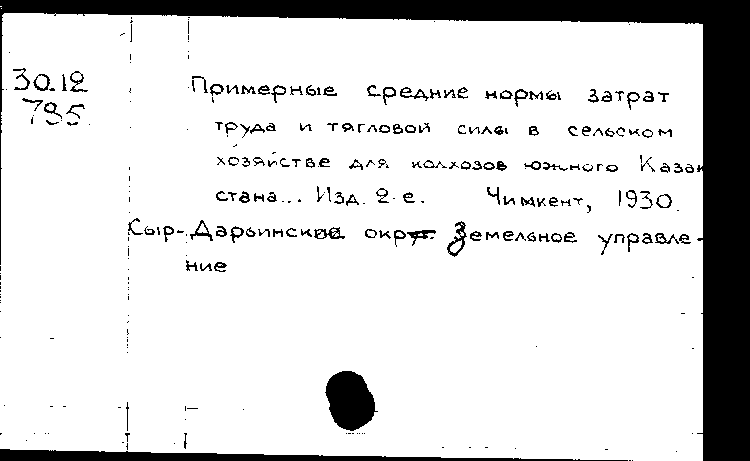 30.12
795
Примерные средние нормы затрат
труда и тягловой силы в сельском
хозяйстве для колхозов южного Казах
стана... Изд. 2-е. Чимкент, 1930.
Сыр-Дарьинское окр. Земельное управле-
ние